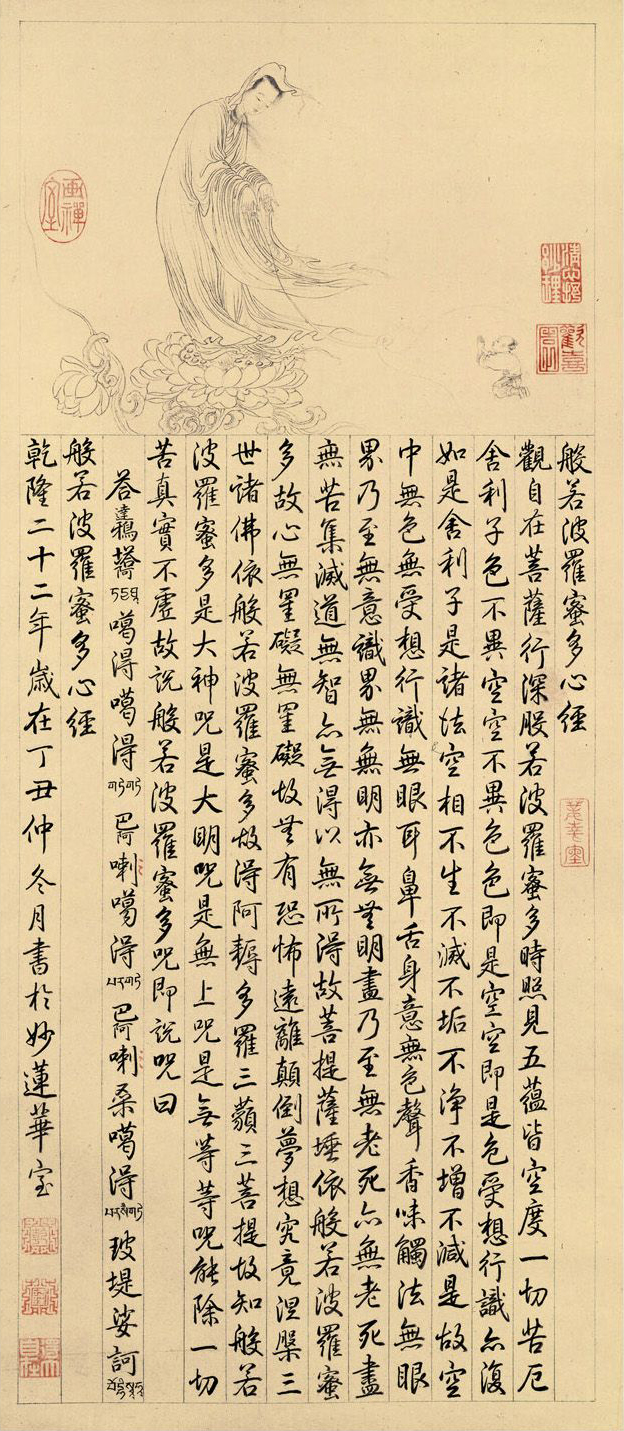 般若波羅蜜多心經
觀自在菩薩行深般若波羅蜜多時照見五蘊皆空度一切苦厄
舍利子色不異空空不異色色即是空空即是色受想行識亦復
如是舍利子是諸法空相不生不滅不垢不淨不增不減是故空
中無色無受想行識無眼耳鼻舌身意無色聲香味觸法無眼
界乃至無意識界無無明亦無無明盡乃至無老死亦無老死盡
無苦集滅道無智亦無得以無所得故菩提薩埵依般若波羅蜜
多故心無罣礙無罣礙故無有恐怖遠離顛倒夢想究竟涅槃三
世諸佛依般若波羅蜜多故得阿耨多羅三藐三菩提故知般若
波羅蜜多是大神呪是大明呪是無上呪是無等等呪能除一切
苦真實不虛故說般若波羅蜜多呪即說呪曰
噶得噶得 巴阿喇噶得 巴阿喇桑噶得 玻堤娑訶
般若波羅蜜多心經
乾隆二十二年歲在丁丑仲冬月書於妙蓮華室
畫禪室